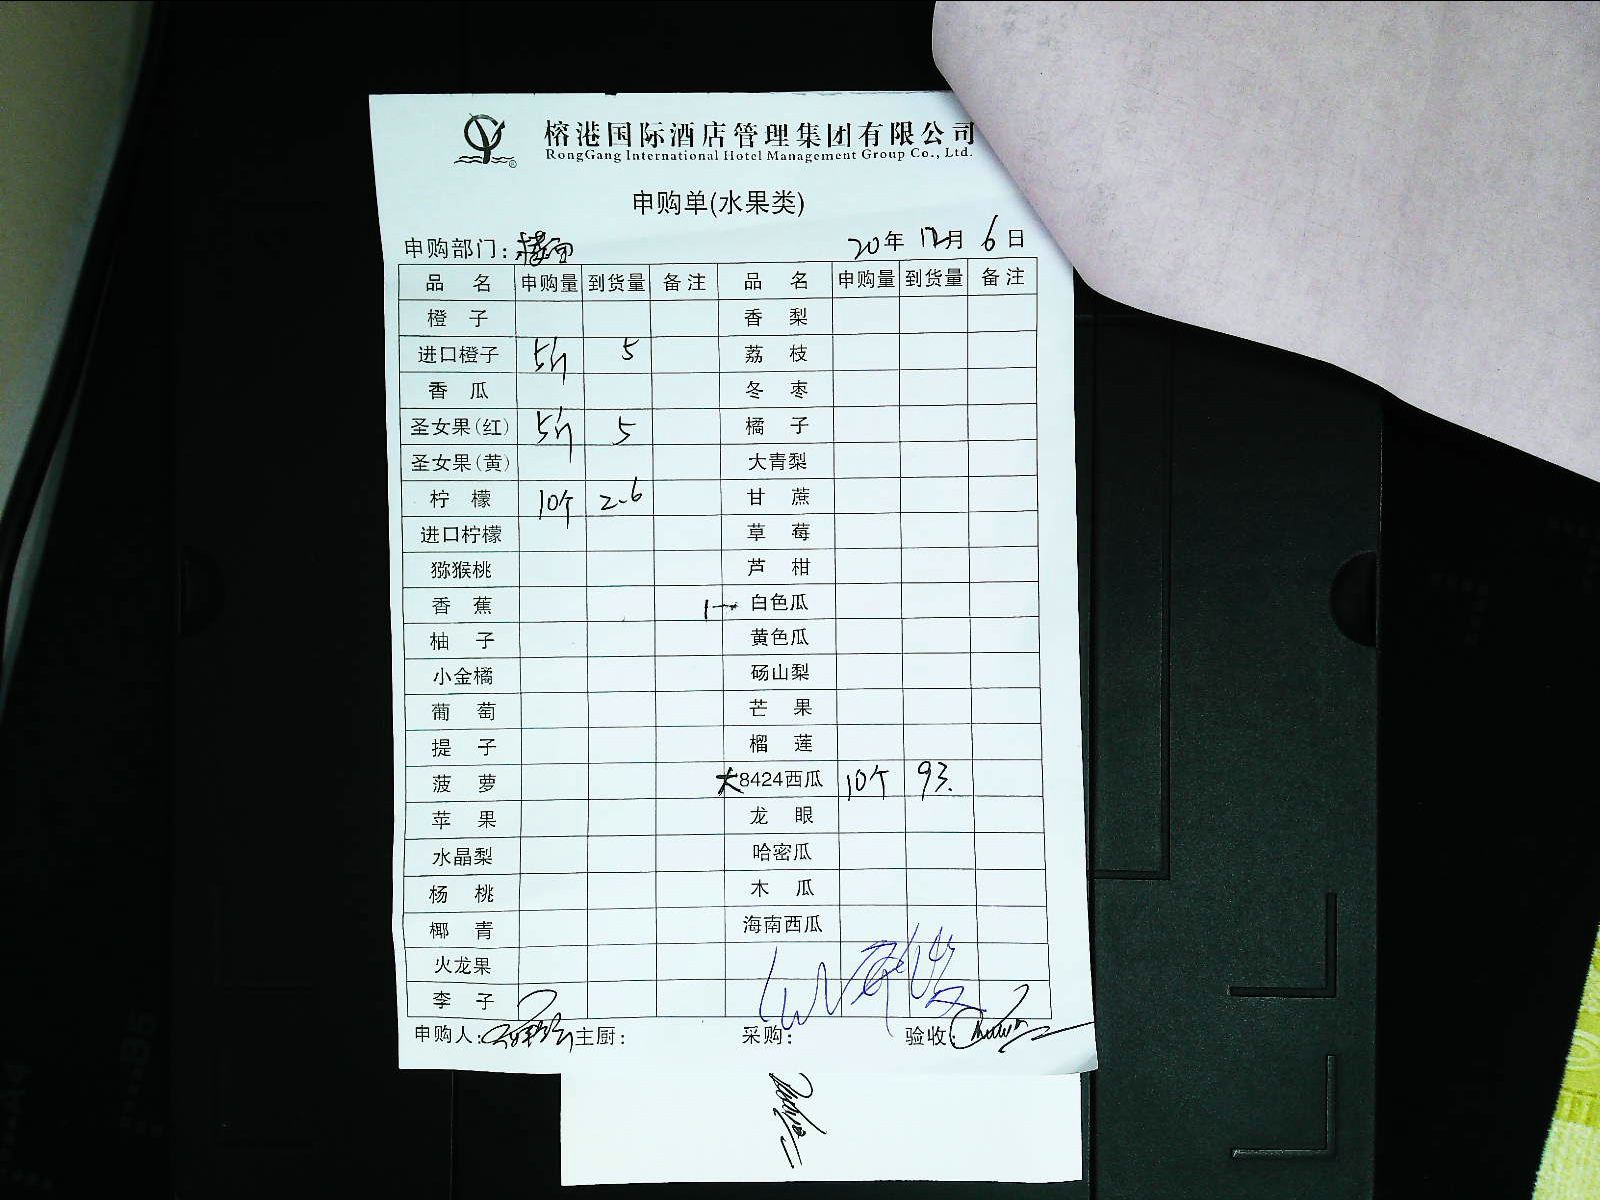 榕港国际酒店管理集团有限公司
RongGang International Hotel Management Group Co., Ltd.
申购单(水果类)
申购部门: 楼面 20年 12月 6日
品 名 申购量 到货量 备注 品 名 申购量 到货量 备注
橙 子 香 梨
进口橙子 5斤 5 荔 枝
香 瓜 冬 枣
圣女果(红) 5斤 5 橘 子
圣女果(黄) 大青梨
柠 檬 10个 2.6 甘 蔗
进口柠檬 草 莓
猕猴桃 芦 柑
香 蕉 白色瓜
柚 子 黄色瓜
小金橘 砀山梨
葡 萄 芒 果
提 子 榴 莲
菠 萝 大8424西瓜 10个 93.
苹 果 龙 眼
水晶梨 哈密瓜
杨 桃 木 瓜
椰 青 海南西瓜
火龙果
李 子
申购人: 主厨: 采购: 验收: